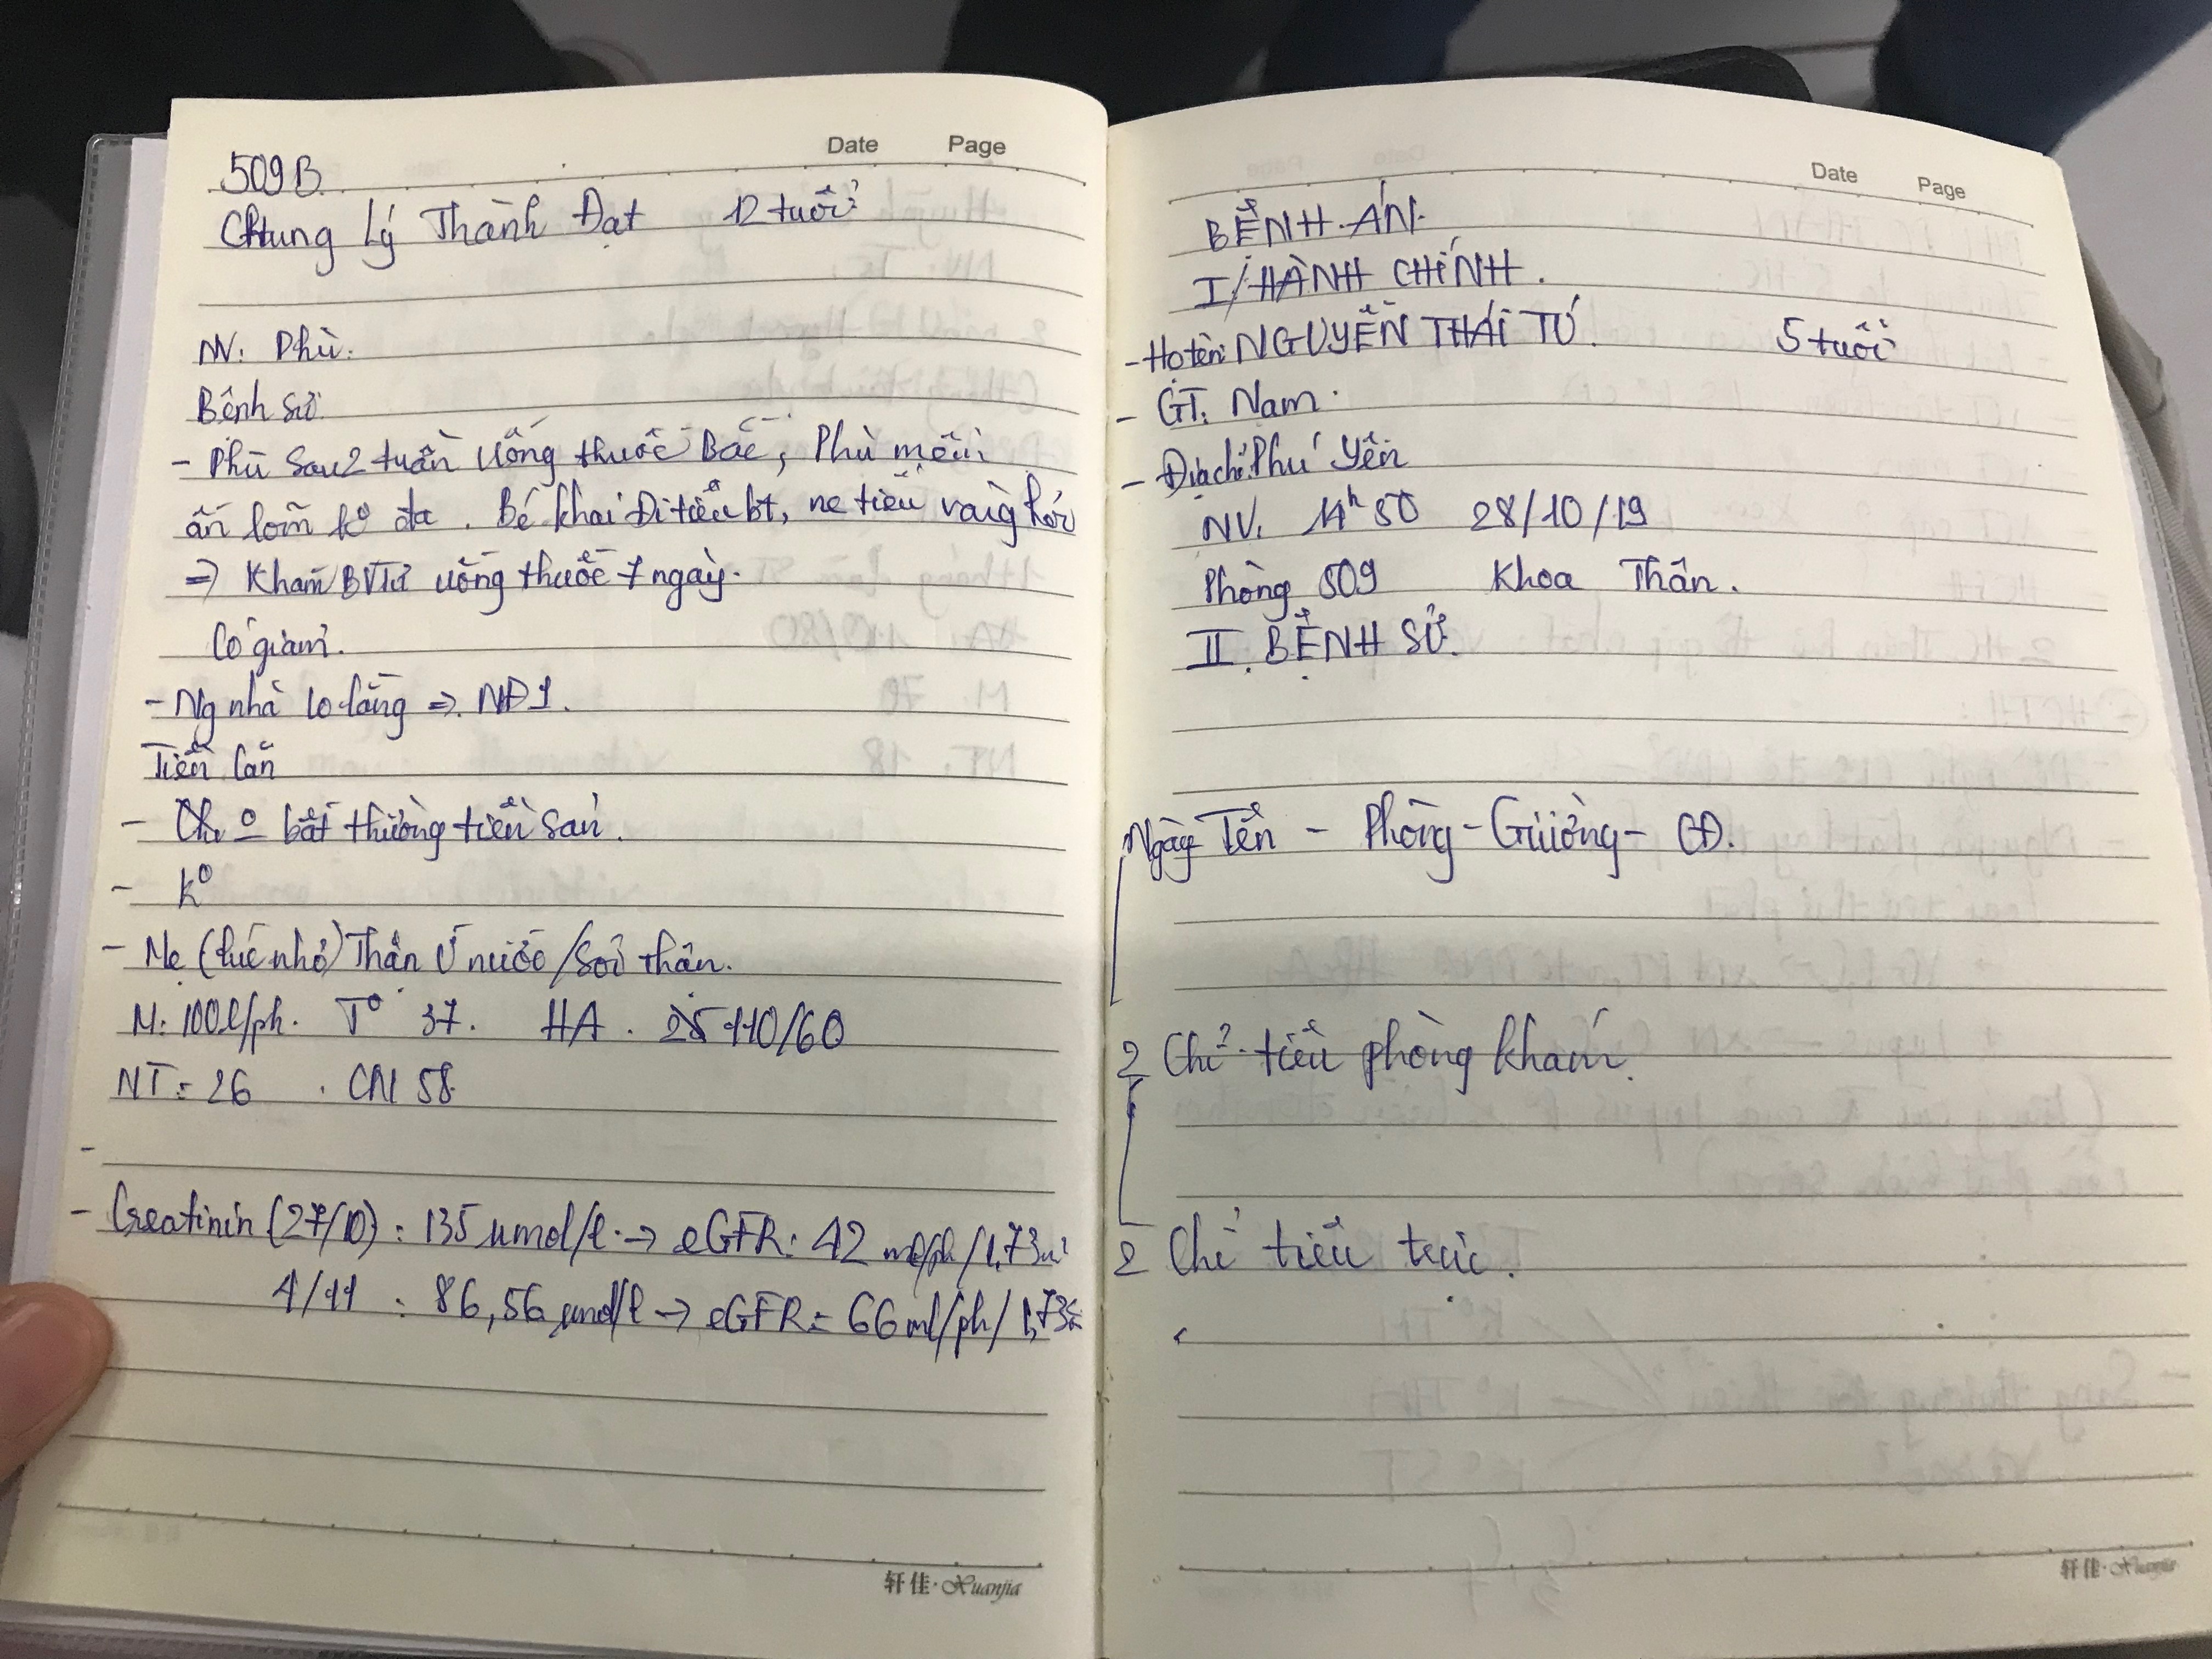 Date Page
509B
Chung Lý Thành Đạt 12 tuổi
NV: Phù.
Bệnh sử
- Phù sau 2 tuần uống thuốc Bắc, Phù mềm
ấn lõm k° đa. Bé khai Đi tiểu bt, nc tiểu vàng hơi
=> Khám BVTừ uống thuốc 7 ngày.
Có giảm.
- Ng nhà lo lắng => NĐ1.
Tiền căn
- bất thường tiền sản.
- k°
- Mẹ (lúc nhỏ) Thận ứ nước / Sỏi thận.
M: 100l/ph. T° 37. HA. 110/60
NT = 26 . CN 58
-
- Creatinin (27/10) : 135 µmol/l -> eGFR: 42 ml/ph/1,73m²
4/11 : 86,56 µmol/l -> eGFR = 66 ml/ph/1,73
轩佳·Xuanjia
Date Page
BỆNH ÁN.
I/ HÀNH CHÍNH.
- Họ tên: NGUYỄN THÁI TÚ. 5 tuổi
- GT: Nam.
- Địa chỉ: Phú Yên
NV: 14h50 28/10/19
Phòng 509 Khoa Thận.
II. BỆNH SỬ.
Ngày Tên - Phòng - Giường - CĐ.
2 Chỉ tiêu phòng khám.
2 Chỉ tiêu trực.
轩佳·Xuanjia